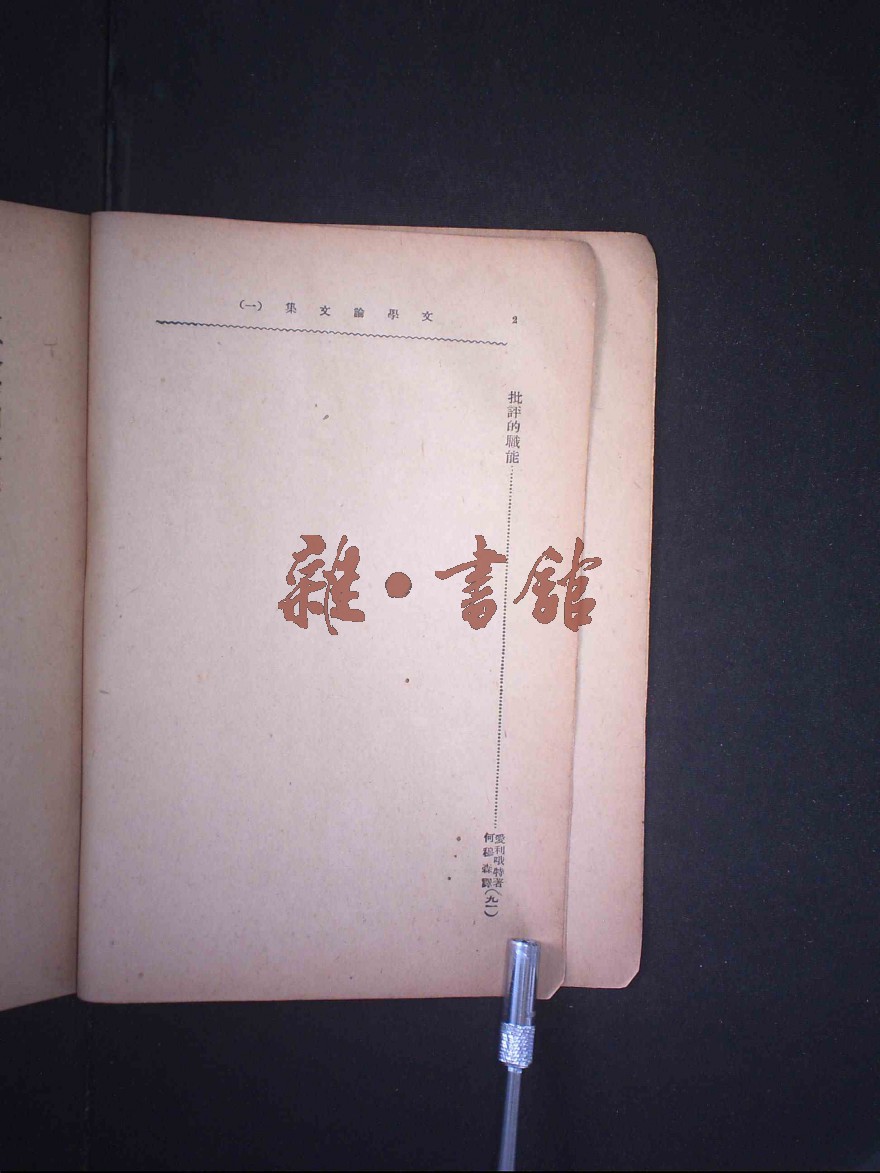 2 文學論文集(一)
批評的職能
愛利哦特著
何穆森譯
(九一)
雜·書館